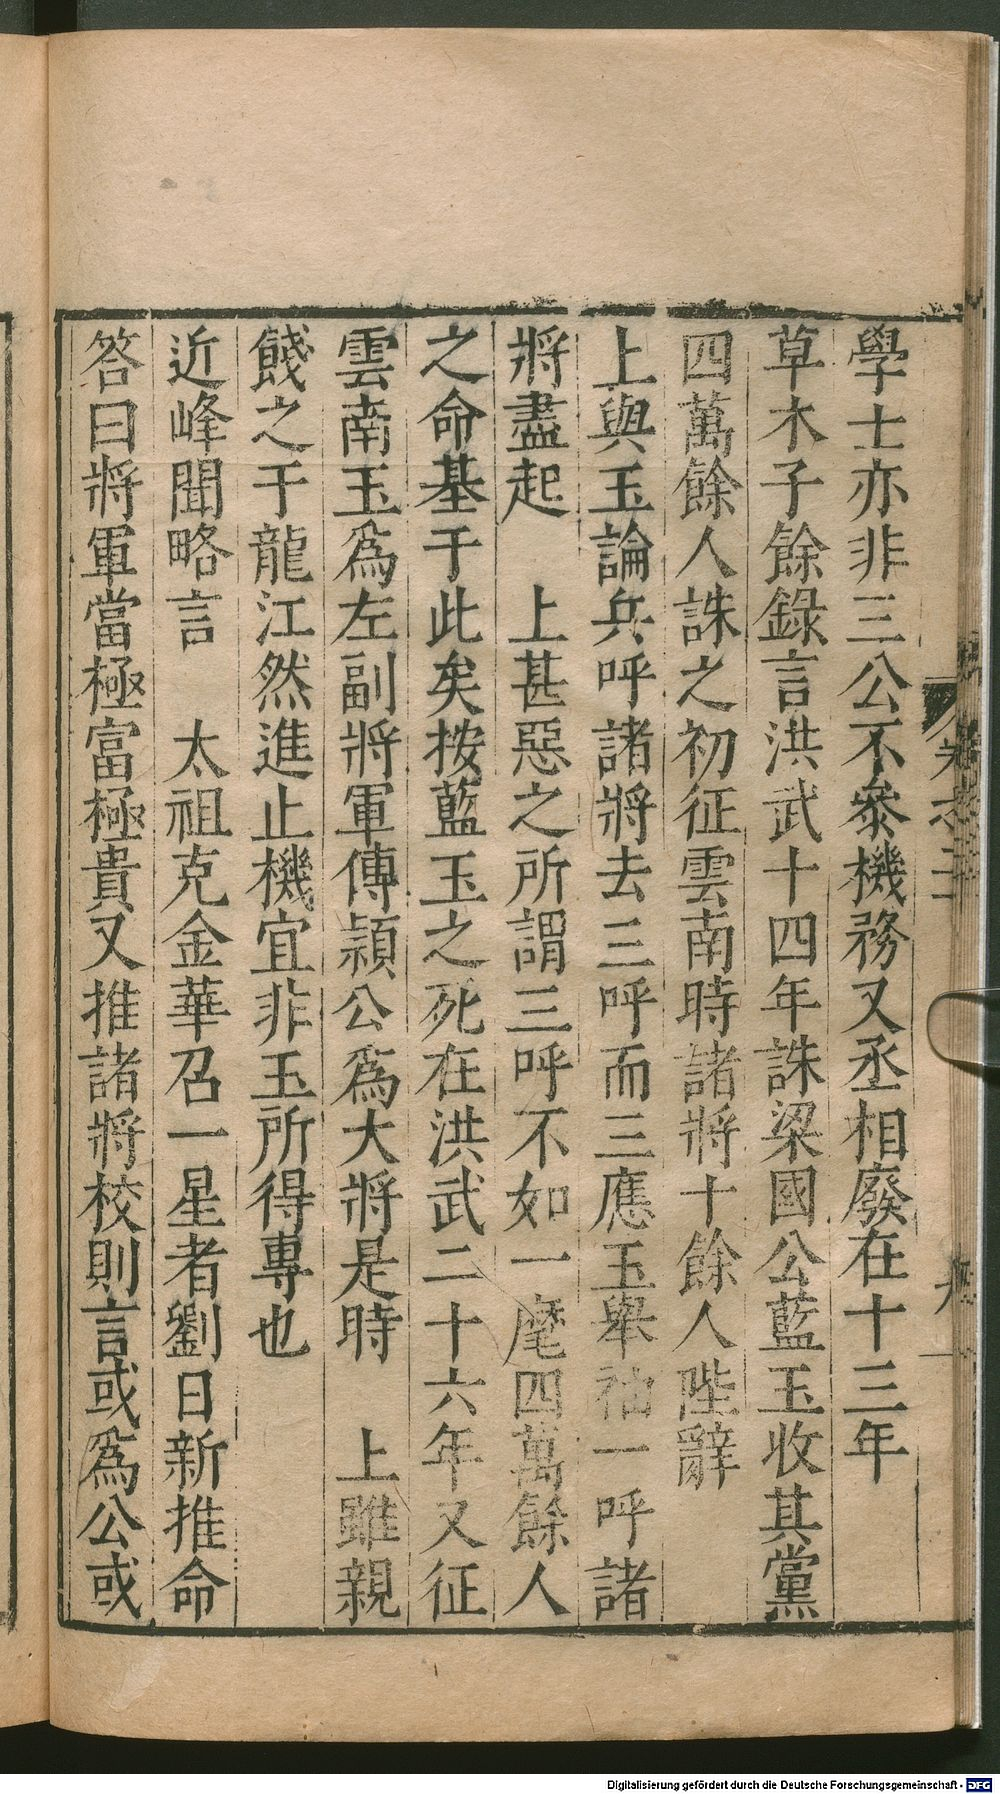 學士亦非三公不叅機務又丞相廢在十三年
草木子餘錄言洪武十四年誅梁國公藍玉收其黨
四萬餘人誅之初征雲南時諸將十餘人陛辭
上與玉論兵呼諸將去三呼而三應玉舉袖一呼諸
將盡起　上甚惡之所謂三呼不如一麾四萬餘人
之命基于此矣按藍玉之死在洪武二十六年又征
雲南玉爲左副將軍傅潁公爲大將是時　上雖親
餞之于龍江然進止機宜非玉所得專也
近峰聞略言　太祖克金華召一星者劉日新推命
答曰將軍當極富極貴又推諸將校則言或爲公或
Digitalisierung gefördert durch die Deutsche Forschungsgemeinschaft - DFG